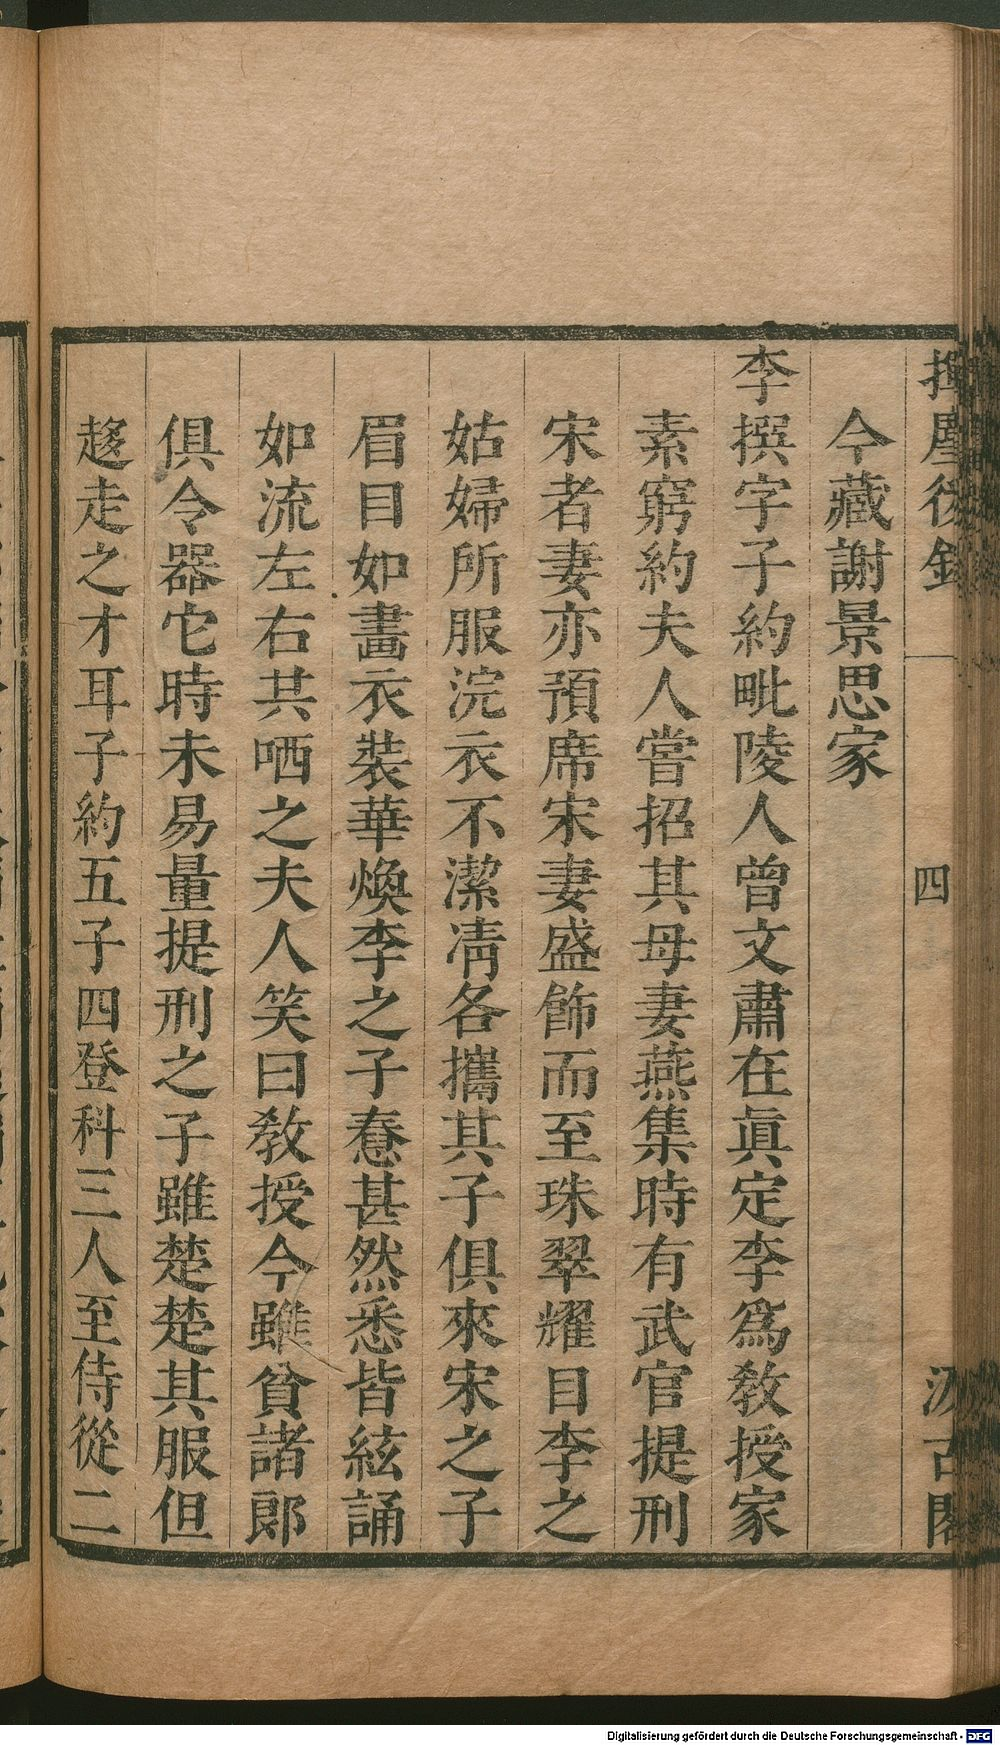 揮麈後錄
四
汲古閣
今藏謝景思家
李撰字子約毗陵人曾文肅在眞定李爲教授家
素窮約夫人嘗招其母妻燕集時有武官提刑
宋者妻亦預席宋妻盛飾而至珠翠耀目李之
姑婦所服浣衣不潔凊各攜其子俱來宋之子
眉目如畫衣裝華煥李之子憃甚然悉皆絃誦
如流左右共哂之夫人笑曰教授今雖貧諸郞
俱令器它時未易量提刑之子雖楚楚其服但
趍走之才耳子約五子四登科三人至侍從二
Digitalisierung gefördert durch die Deutsche Forschungsgemeinschaft - DFG